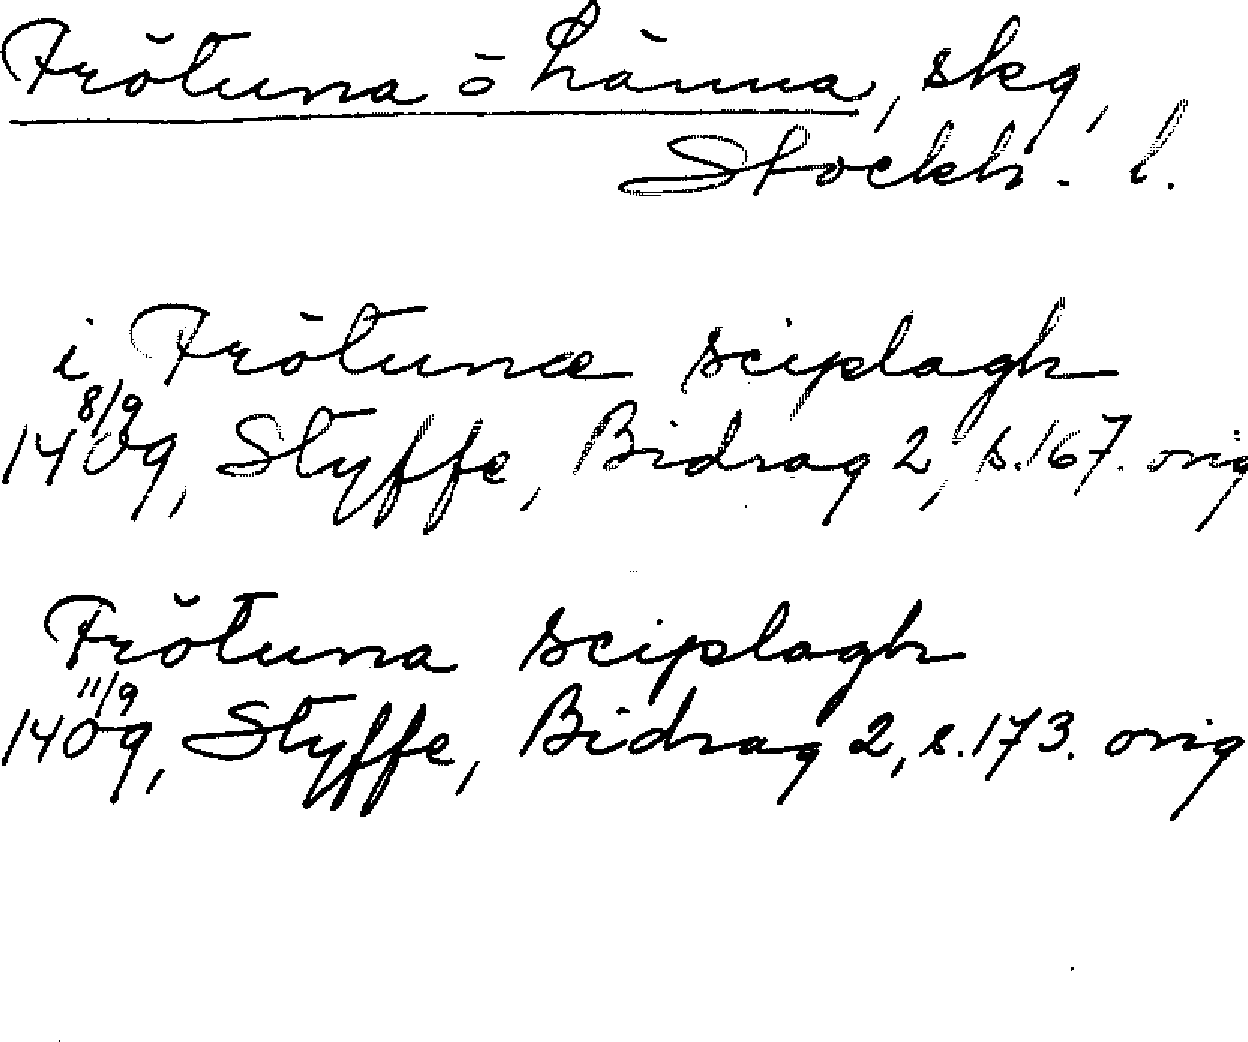 Frötuna o Länna, skg,
Stockh. l.
i Frötunæ sciplagh
8/9
1409, Styffe, Bidrag 2, s. 167. orig
Frötuna sciplagh
11/9
1409, Styffe, Bidrag 2, s. 173. orig